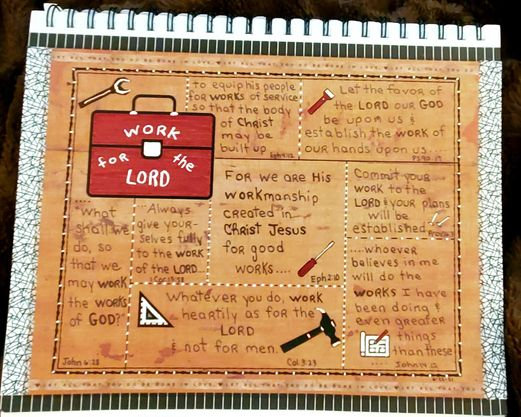 LET ALL THAT YOU DO BE DONE IN LOVE.
WORK
for the
LORD
to equip his people
for works of service
so that the body
of Christ
may be
built up
Eph 4:12
Let the favor of
the LORD our GOD
be upon us &
establish the work of
our hands upon us...
Ps 90:17
"What
shall we
do, so
that we
may work
the works
of GOD?"
John 6:28
...Always
give your-
selves fully
to the work
of the LORD.
1 Cor 15:58
FOR we are His
WORKmanship
created in
Christ Jesus
for good
works....
Eph 2:10
Commit your
work to the
LORD & your plans
will be
established
Prov 16:3
....whoever
believes in me
will do the
works I have
been doing &
even greater
things
than these....
John 14:12
Whatever you do, work
heartily as for the
LORD
& not for men.
Col 3:23
LET ALL THAT YOU DO BE DONE IN LOVE.